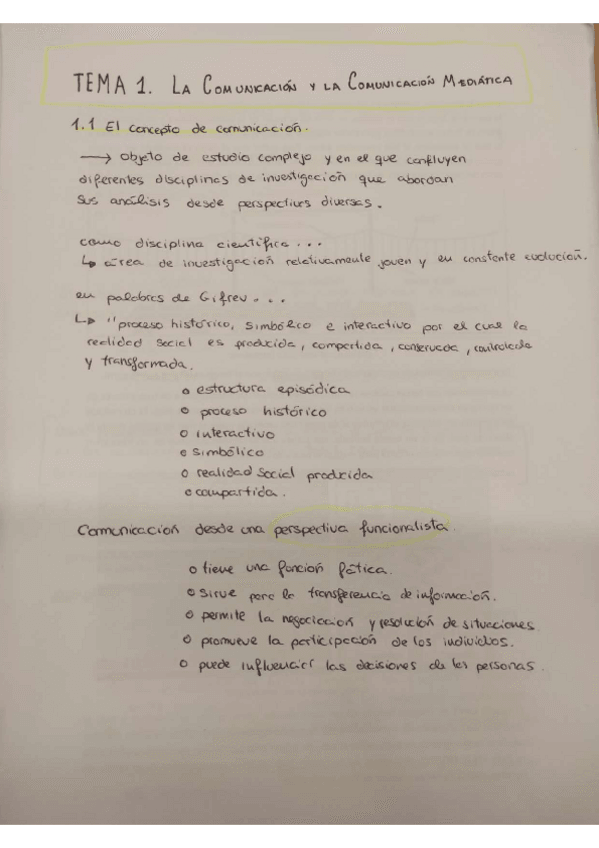 TEMA 1. LA COMUNICACIÓN Y LA COMUNICACIÓN MEDIÁTICA
1.1 El concepto de comunicación.
→ objeto de estudio complejo y en el que confluyen
diferentes disciplinas de investigación que abordan
sus análisis desde perspectivas diversas.
como disciplina científica...
↳ área de investigación relativamente joven y en constante evolución.
en palabras de Gifreu...
↳ "proceso histórico, simbólico e interactivo por el cual la
realidad social es producida, compartida, conservada, controlada
y transformada.
o estructura episódica
o proceso histórico
o interactivo
o simbólico
o realidad social producida
o compartida.
Comunicación desde una perspectiva funcionalista.
o tiene una función fática.
o sirve para la transferencia de información.
o permite la negociación y resolución de situaciones.
o promueve la participación de los individuos.
o puede influenciar las decisiones de las personas.